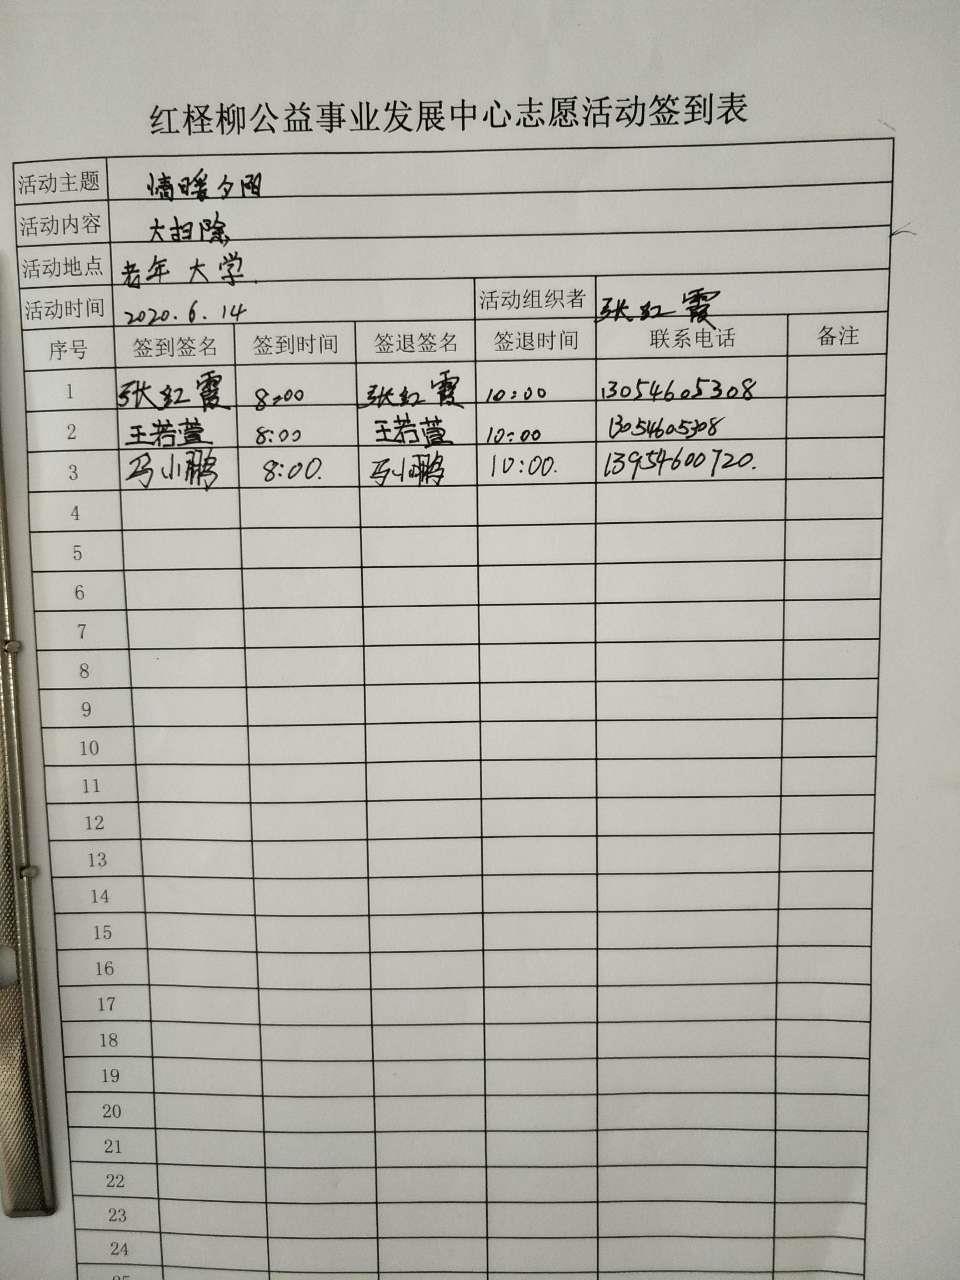 红柽柳公益事业发展中心志愿活动签到表
活动主题 情暖夕阳
活动内容 大扫除
活动地点 老年大学.
活动时间 2020.6.14 活动组织者 张红霞
序号 签到签名 签到时间 签退签名 签退时间 联系电话 备注
1 张红霞 8:00 张红霞 10:00 13054605308
2 王若萱 8:00 王若萱 10:00 13054605308
3 马小鹏 8:00. 马小鹏 10:00. 13954600720.
4
5
6
7
8
9
10
11
12
13
14
15
16
17
18
19
20
21
22
23
24
25